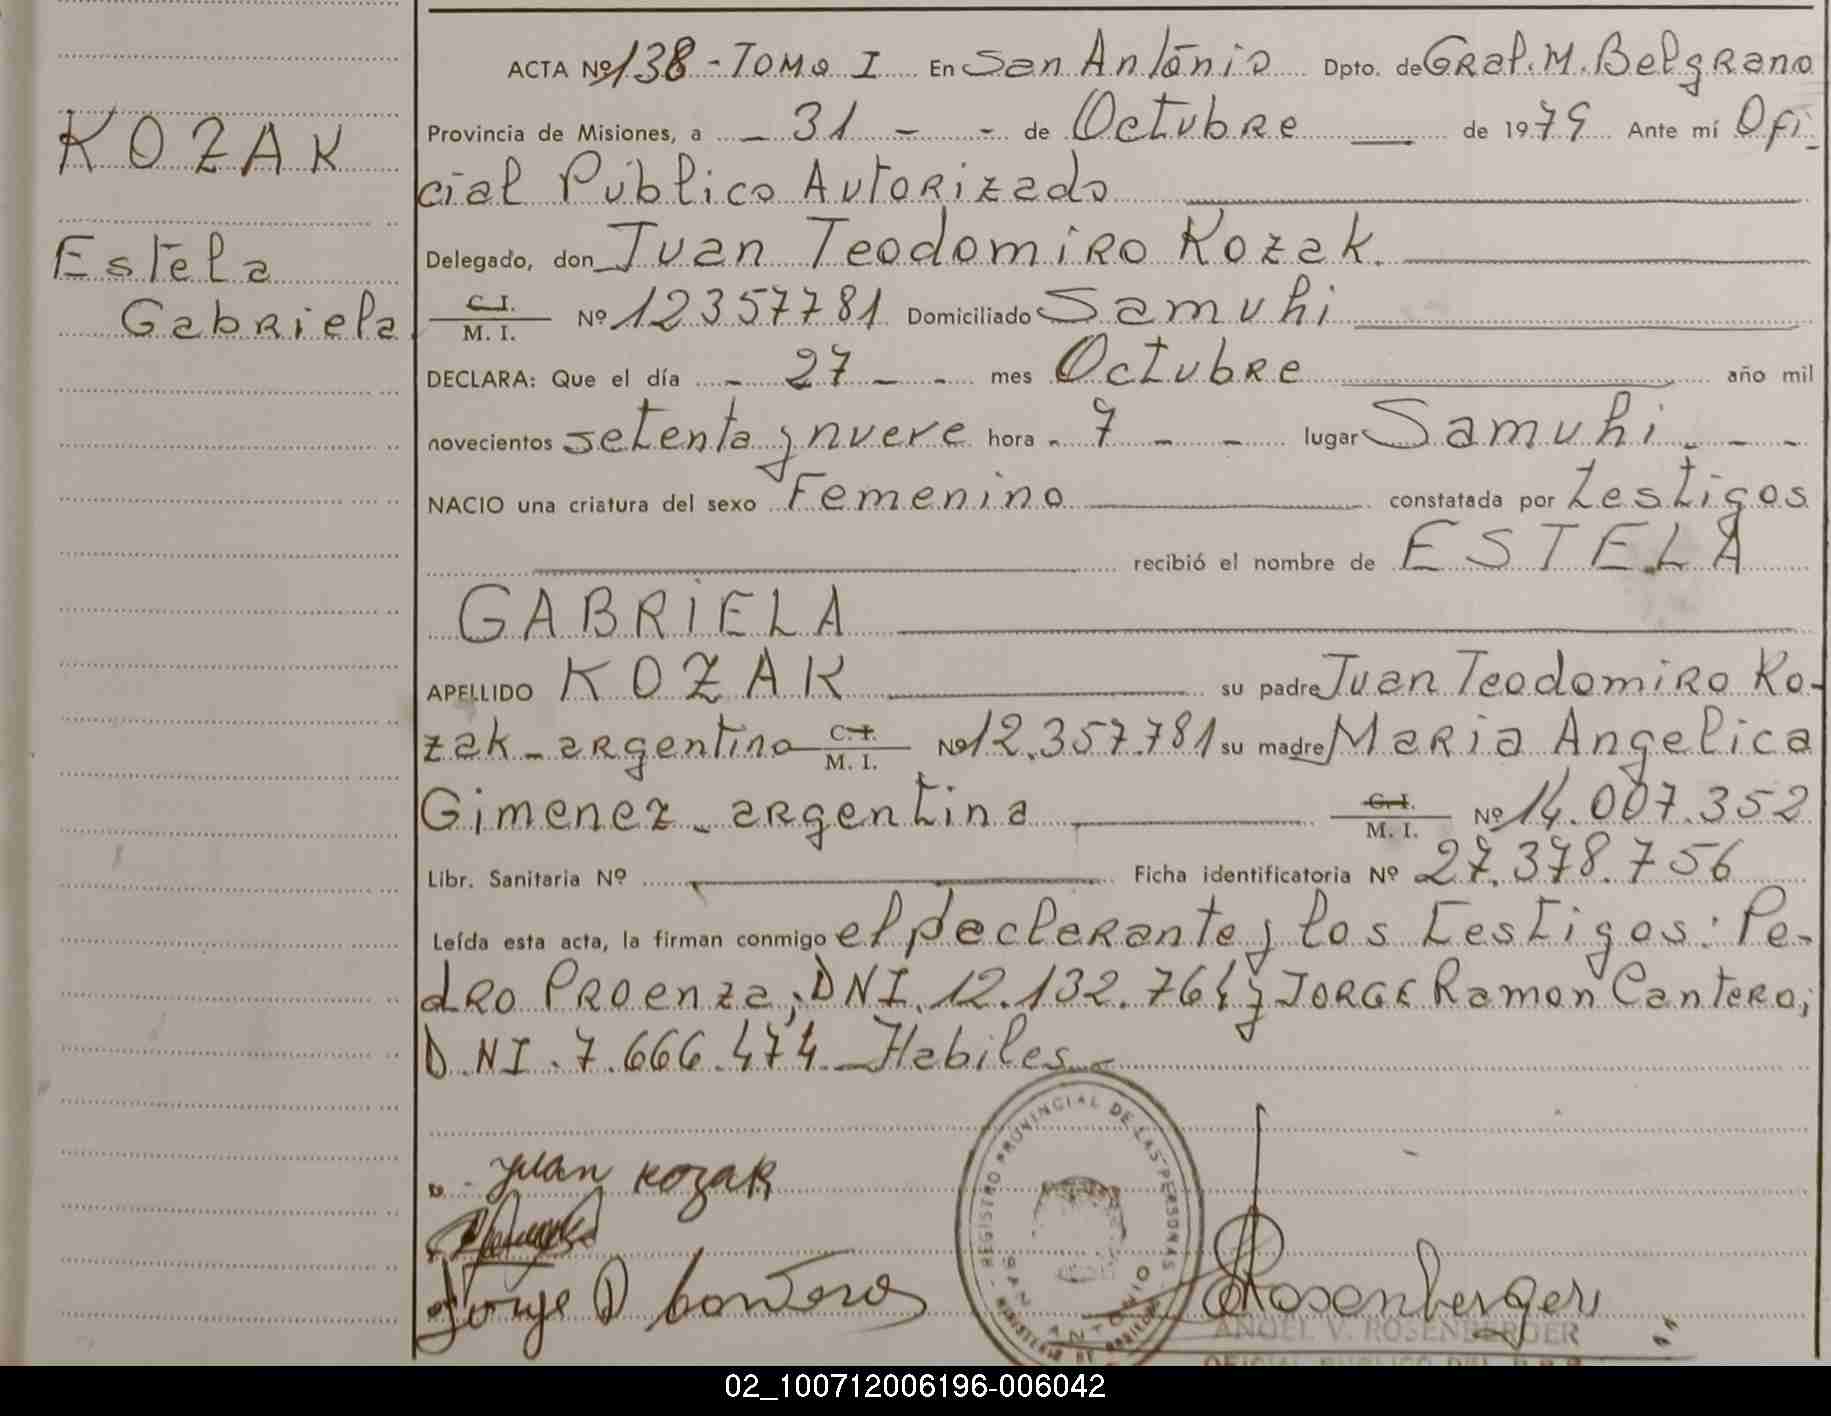 KOZAK
Estela
Gabriela
ACTA Nº 138 - TOMO I En San António Dpto. de Gral. M. Belgrano
Provincia de Misiones, a - 31 - - de Octubre de 1979 Ante mí Ofi-
cial Público Autorizado
Delegado, don Juan Teodomiro Kozak.
C.I.
M. I. Nº 12357781 Domiciliado Samuhi
DECLARA: Que el día - 27 - - mes Octubre año mil
novecientos setenta y nueve hora - 7 - - lugar Samuhi - - -
NACIO una criatura del sexo Femenino constatada por testigos
recibió el nombre de ESTELA
GABRIELA
APELLIDO KOZAK su padre Juan Teodomiro Ko-
zak - argentino C.I. M. I. Nº 12.357.781 su madre Maria Angelica
Gimenez - argentina C.I. M. I. Nº 14.007.352
Libr. Sanitaria Nº Ficha identificatoria Nº 27.378.756
Leída esta acta, la firman conmigo el declarante y los testigos: Pe-
dro Proenza; DNI. 12.132.764 y JORGE Ramon Cantero;
D.NI. 7.666.474 - Habiles -
Juan Kozak
Jorge R Cantero
REGISTRO PROVINCIAL DE LAS PERSONAS
SAN ANTONIO
MINISTERIO DE GOBIERNO
Rosenberger
ANGEL V. ROSENBERGER
OFICIAL PUBLICO DEL R.P.P.
02_100712006196-006042